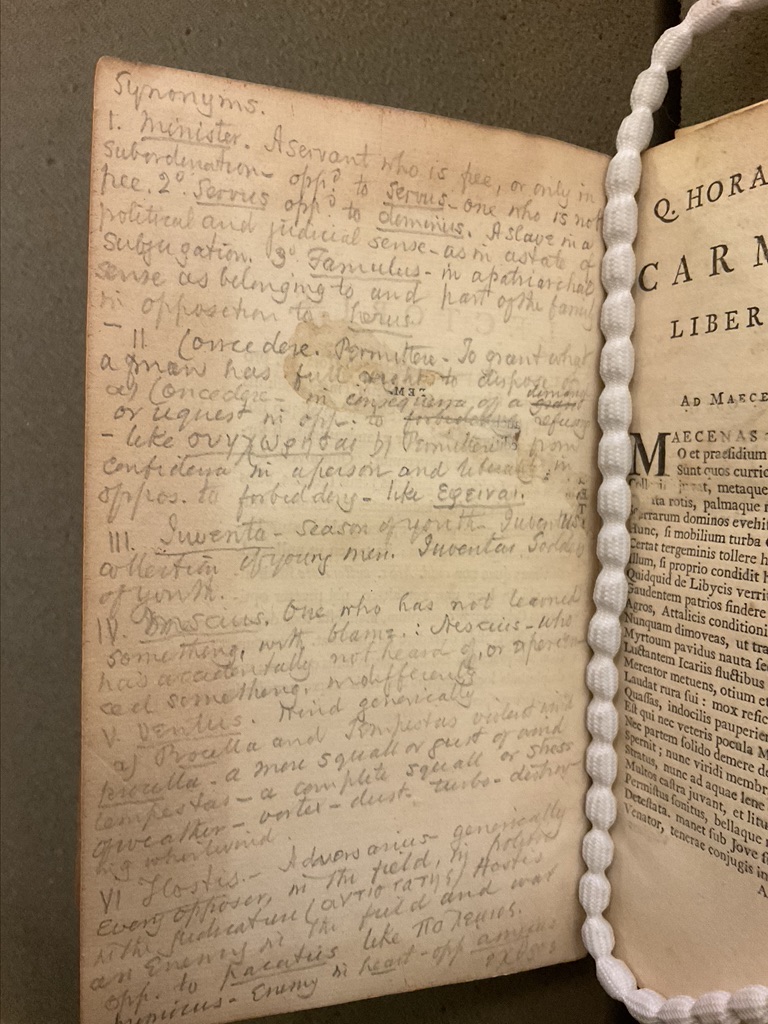 Synonyms.
1. Minister. A servant who is free, or only in
subordination - opp.d to servus - one who is not
free. 2o. Servus opp.d to dominus. A slave in a
political and judicial sense - as in a state of
Subjugation. 3o Famulus - in a patriarchal
sense as belonging to and part of the family
in opposition to herus.
- II Concedere. Permittere - To grant what
a man has full rights to dispose of
a) Concedere - in consequence of a demand
or request in opp. to refusing
- like b) Permittere from
confidence in a person and liberality in
oppos. to forbidding - like
III. Juventa - season of youth. Juventus.
collection of young men. Juventas
of youth.
IV. Inscius. One who has not learned
something, with blame. : Nescius - who
has accidentally not heard of, or experien
ced something, indifferently
V. Ventus. Wind generically
a) Procella and Tempestas violent wind
procella - a mere squall or gust of wind
tempestas - a complete squall or
of weather - vortex - dust. turbo - destroy-
ing whirlwind.
VI Hostis. - Adversarius generically
Every opposer, in the field, in politics
in the judicature Hostis
an Enemy in the field and war
opp. to Pacatus like
inimicus - Enemy in heart - opp amicus
Q. HORA
CARM
LIBER
AD MAECE
MAECENAS
O et praesidium
Sunt quos curric
metaque
rotis, palmaque
Terrarum dominos evehit
Hunc, si mobilium turba
Certat tergeminis tollere h
Illum, si proprio condidit h
Quidquid de Libycis verri
Gaudentem patrios findere
Agros, Attalicis conditioni
Nunquam dimoveas, ut tra
Myrtoum pavidus nauta se
Luctantem Icariis fluctibus
Mercator metuens, otium et
Laudat rura sui : mox refic
Quassas, indocilis pauperie
Est qui nec veteris pocula M
Nec partem solido demere de
Spernit ; nunc viridi membr
Stratus, nunc ad aquae lene
Multos castra juvant, et litu
Permistus sonitus, bellaque
Detestata. manet sub Jove f
Venator, tenerae conjugis in
A